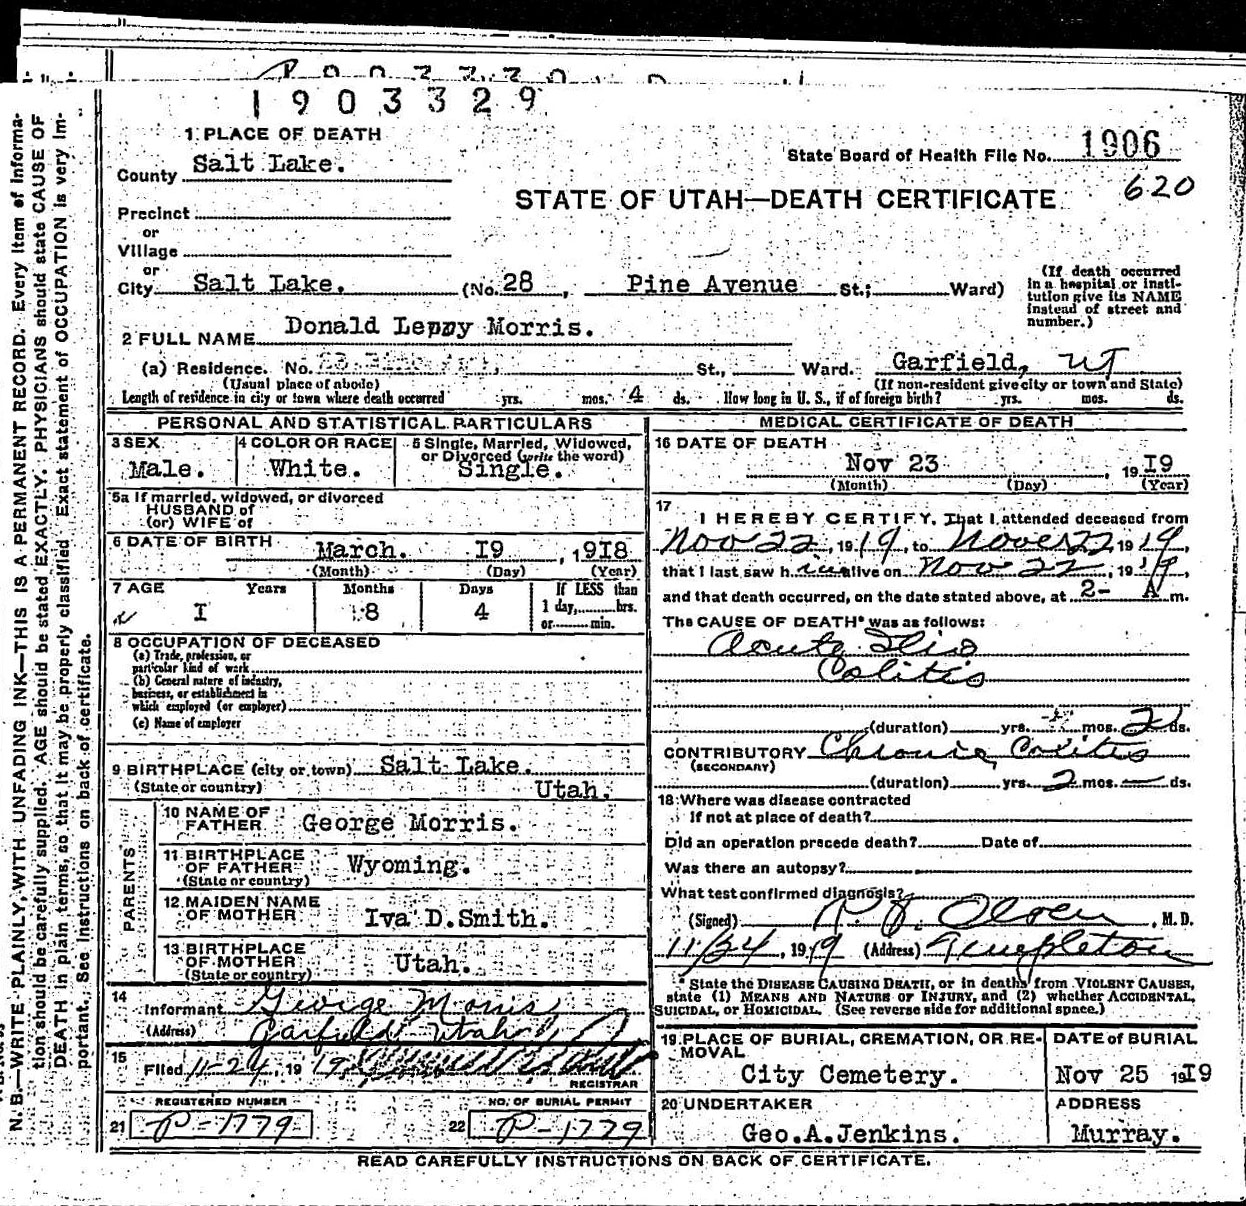 1903329
1 PLACE OF DEATH
State Board of Health File No. 1906
County Salt Lake.
620
STATE OF UTAH—DEATH CERTIFICATE
Precinct
or
Village
or
City Salt Lake. (No. 28, Pine Avenue St.; Ward)
(If death occurred in a hospital or institution give its NAME instead of street and number.)
2 FULL NAME Donald Leroy Morris.
(a) Residence. No. St., Ward. Garfield, UT
(Usual place of abode) (If non-resident give city or town and State)
Length of residence in city or town where death occurred yrs. mos. 4 ds. How long in U. S., if of foreign birth? yrs. mos. ds.
PERSONAL AND STATISTICAL PARTICULARS
3 SEX Male.
4 COLOR OR RACE White.
5 Single, Married, Widowed, or Divorced (write the word) Single.
5a If married, widowed, or divorced
HUSBAND of
(or) WIFE of
6 DATE OF BIRTH March. I9 , 19I8
(Month) (Day) (Year)
7 AGE Years Months Days If LESS than
I 8 4 1 day, hrs.
or min.
8 OCCUPATION OF DECEASED
(a) Trade, profession, or
particular kind of work
(b) General nature of industry,
business, or establishment in
which employed (or employer)
(c) Name of employer
9 BIRTHPLACE (city or town) Salt Lake.
(State or country) Utah.
PARENTS
10 NAME OF FATHER George Morris.
11 BIRTHPLACE OF FATHER (State or country) Wyoming.
12 MAIDEN NAME OF MOTHER Iva D.Smith.
13 BIRTHPLACE OF MOTHER (State or country) Utah.
14 Informant George Morris
(Address) Garfield Utah
15 Filed 11-24, 1919
REGISTRAR
REGISTERED NUMBER NO. OF BURIAL PERMIT
21 P-1779 22 P-1779
MEDICAL CERTIFICATE OF DEATH
16 DATE OF DEATH
Nov 23 , 19I9
(Month) (Day) (Year)
17 I HEREBY CERTIFY, That I attended deceased from
Nov 22, 1919, to Nov 22 1919,
that I last saw him alive on Nov 22, 1919,
and that death occurred, on the date stated above, at 2- A m.
The CAUSE OF DEATH* was as follows:
Acute Ilio
Colitis
(duration) yrs. mos. 2 ds.
CONTRIBUTORY Chronic Colitis
(SECONDARY)
(duration) yrs. 2 mos. — ds.
18 Where was disease contracted
if not at place of death?
Did an operation precede death? Date of
Was there an autopsy?
What test confirmed diagnosis?
(Signed) Olsen, M. D.
11/24, 1919 (Address) Templeton
* State the DISEASE CAUSING DEATH, or in deaths from VIOLENT CAUSES,
state (1) MEANS AND NATURE OF INJURY, and (2) whether ACCIDENTAL,
SUICIDAL, or HOMICIDAL. (See reverse side for additional space.)
19 PLACE OF BURIAL, CREMATION, OR REMOVAL City Cemetery.
DATE of BURIAL Nov 25 19I9
20 UNDERTAKER Geo.A.Jenkins.
ADDRESS Murray.
READ CAREFULLY INSTRUCTIONS ON BACK OF CERTIFICATE.
N. B.—WRITE PLAINLY, WITH UNFADING INK—THIS IS A PERMANENT RECORD. Every item of informa-
tion should be carefully supplied. AGE should be stated EXACTLY. PHYSICIANS should state CAUSE OF
DEATH in plain terms, so that it may be properly classified. Exact statement of OCCUPATION is very im-
portant. See instructions on back of certificate.